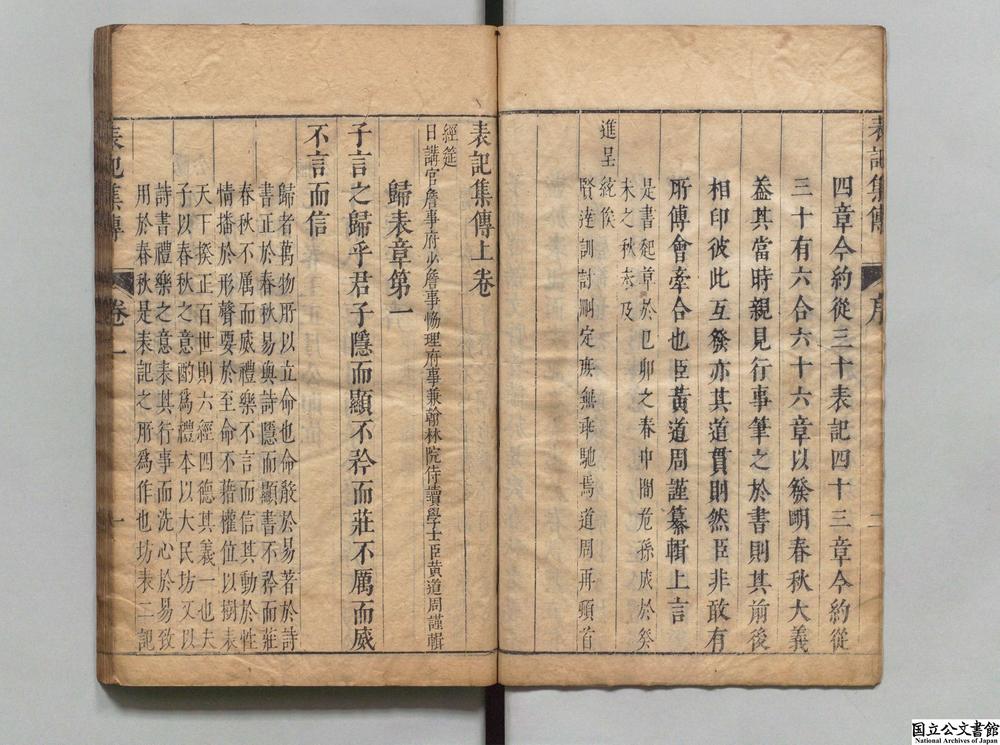 表記集傳
序
二
四章今約從三十表記四十三章今約從
三十有六合六十六章以發明春秋大義
葢其當時親見行事筆之於書則其前後
相印彼此互發亦其道貫則然臣非敢有
所傅會牽合也臣黃道周謹纂輯上言
是書起章於巳卯之春中間
未之秋未及
進呈
統俟
賢達訓討刪定庶無乖馳焉道周再頓首
表記集傳上卷
經筵
日講官詹事府少詹事協理府事兼翰林院侍讀學士臣黃道周謹輯
歸表章第一
子言之歸乎君子隱而顯不矜而莊不厲而威
不言而信
歸者萬物所以立命也命發於易著於詩
書正於春秋易與詩隱而顯書不矜而莊
春秋不厲而威禮樂不言而信其動於性
情播於形聲要於至命不藉權位以樹表
天下揆正百世則六經四德其義一也夫
子以春秋之意酌為禮本以大民坊又以
詩書禮樂之意表其行事而洗心於易致
用於春秋是表記之所為作也坊表二記
表記集傳
卷一
一
国立公文書館
National Archives of Japan